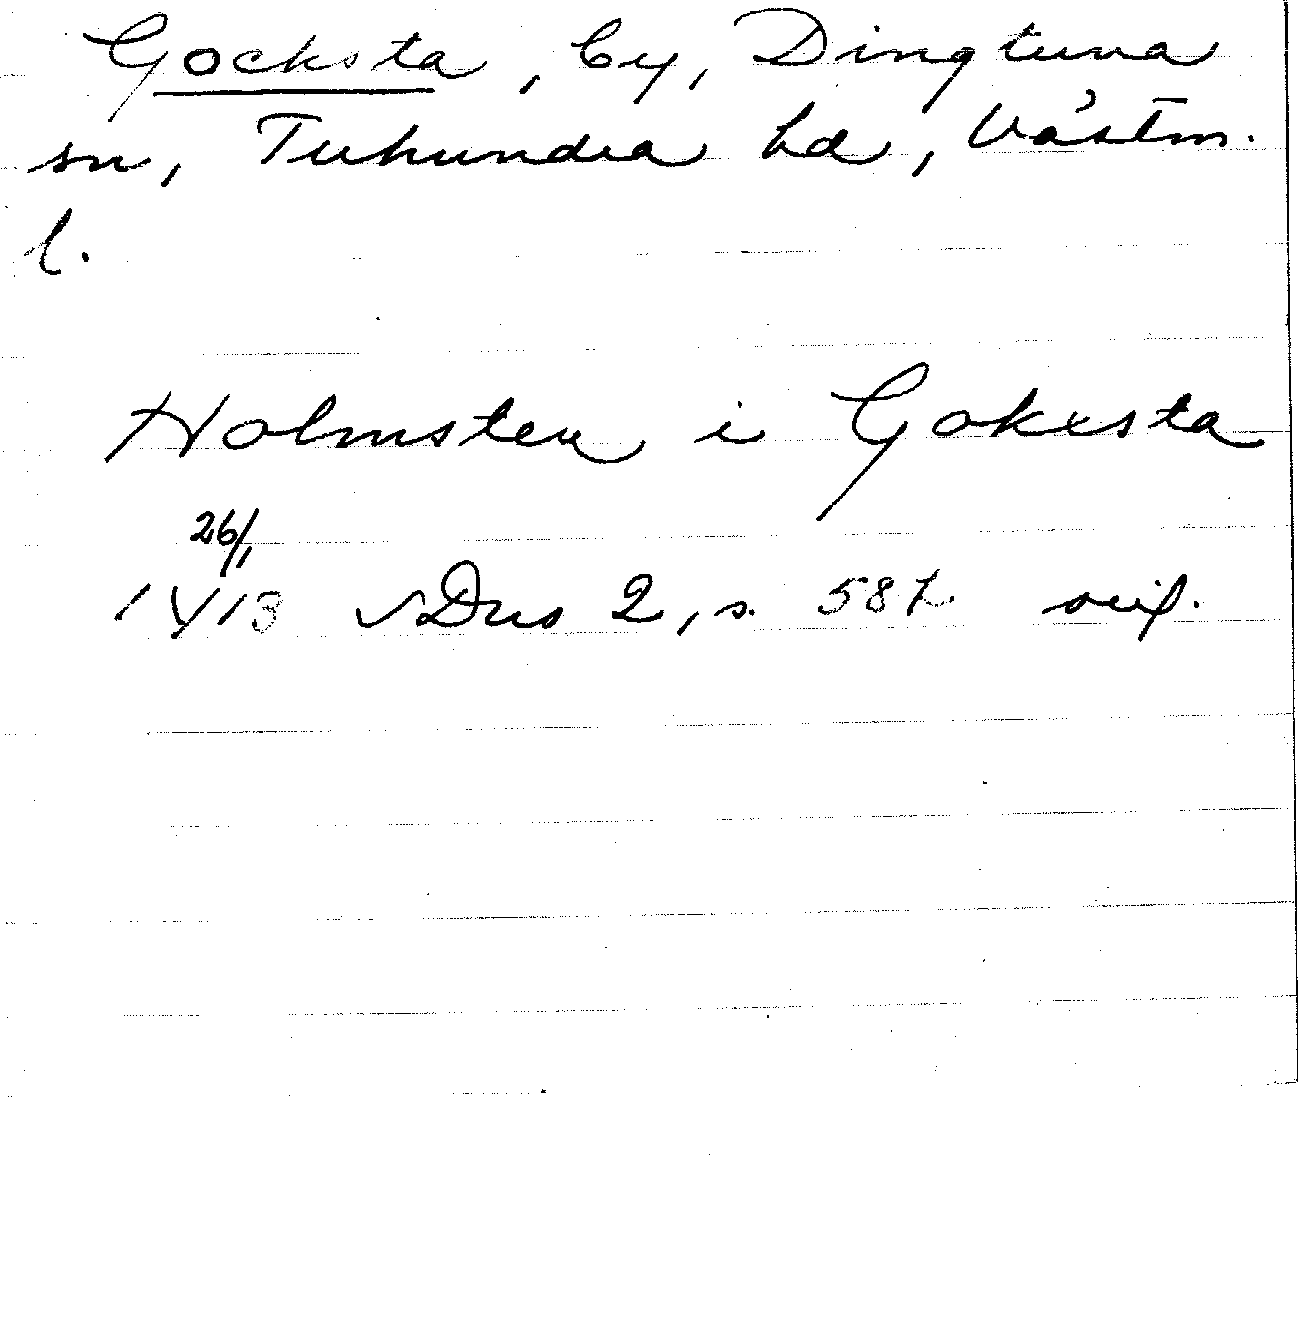 Gocksta, by, Dingtuna
sn, Tuhundra hd, Västm.
l.
Holmsten i Gokxsta
26/1
1413 √ Dns 2, s. 587. orig.